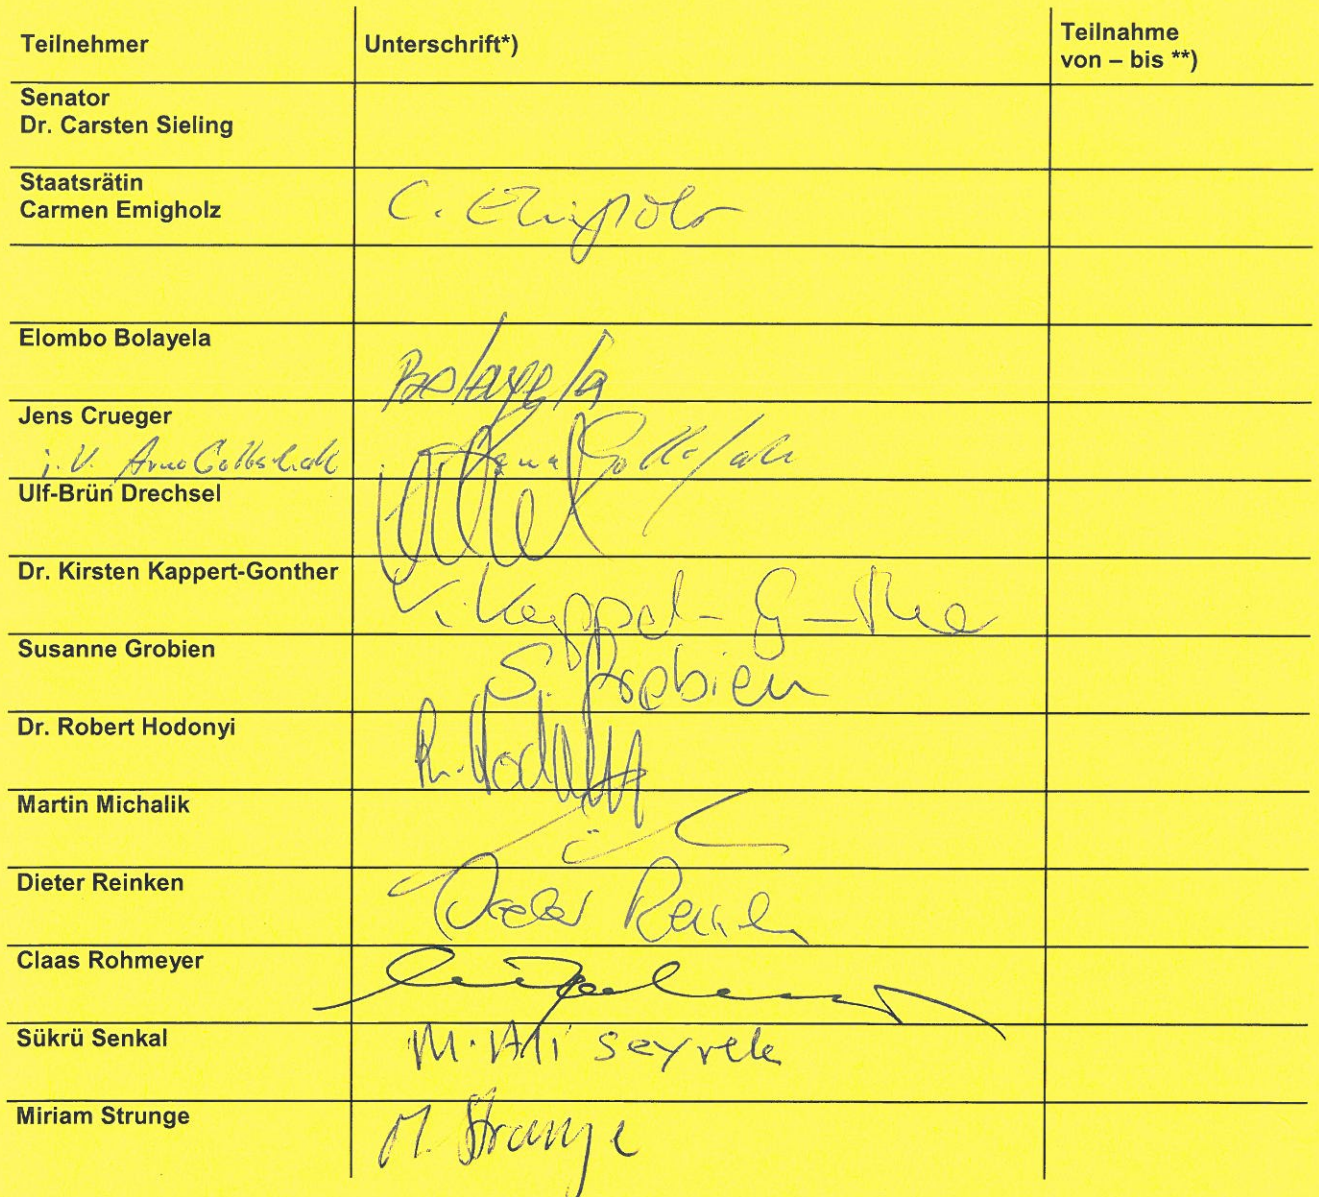 Teilnehmer
Unterschrift*)
Teilnahme
von – bis **)
Senator
Dr. Carsten Sieling
Staatsrätin
Carmen Emigholz
C. Emigholz
Elombo Bolayela
Bolayela
Jens Crueger
i.V. Arno Gottschalk
Arno Gottschalk
Ulf-Brün Drechsel
Dr. Kirsten Kappert-Gonther
K. Kappert-Gonther
Susanne Grobien
S. Grobien
Dr. Robert Hodonyi
Martin Michalik
Dieter Reinken
Dieter Reinken
Claas Rohmeyer
Sükrü Senkal
M. Ali Seyrek
Miriam Strunge
M. Strunge